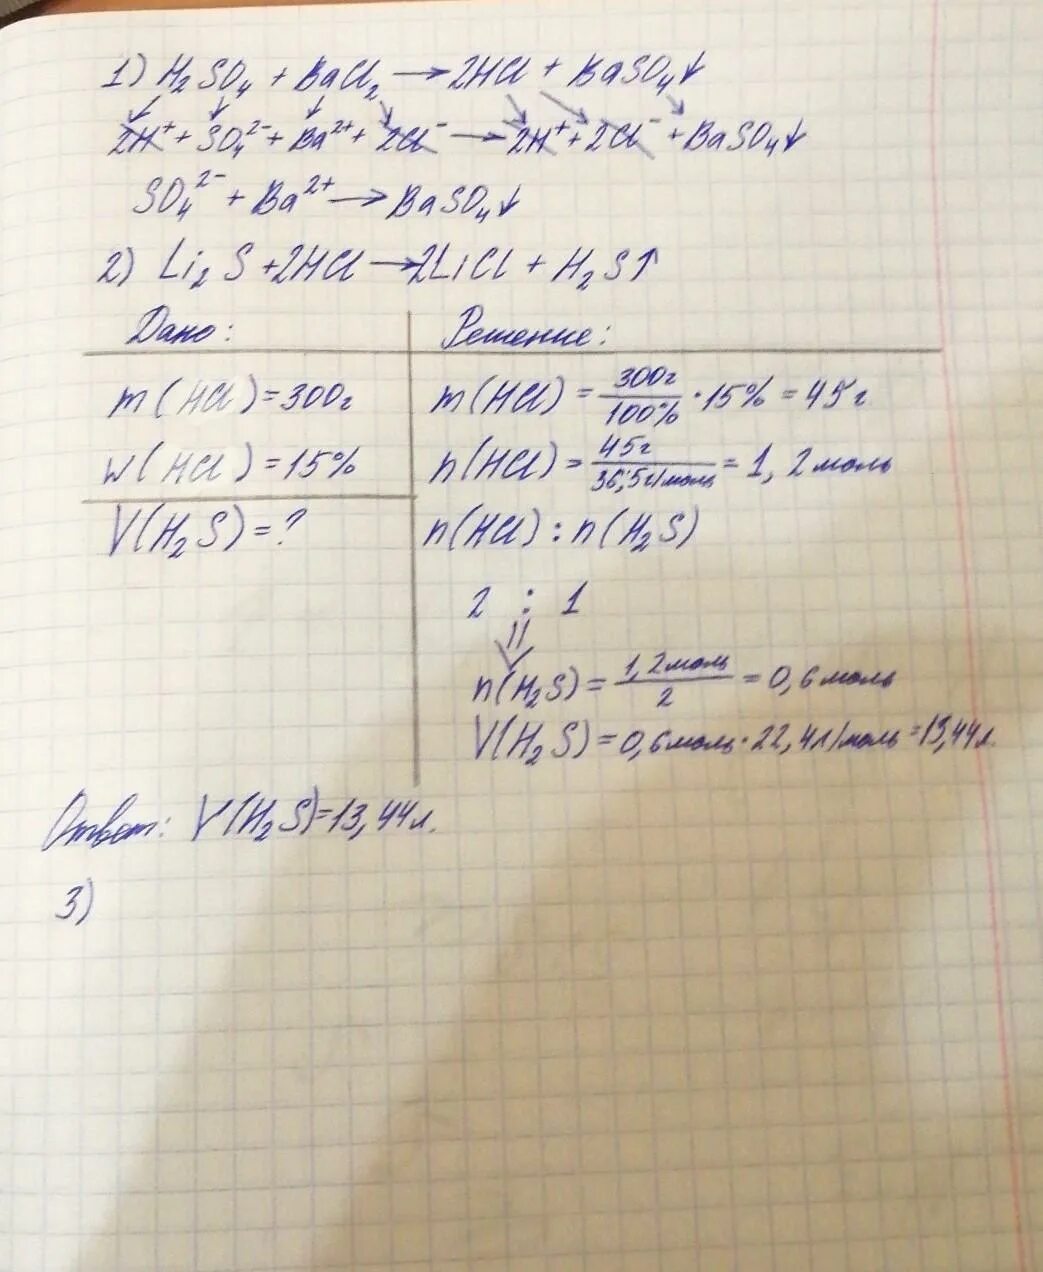 1) H₂SO₄ + BaCl₂ → 2HCl + BaSO₄↓
2H⁺ + SO₄²⁻ + Ba²⁺ + 2Cl⁻ → 2H⁺ + 2Cl⁻ + BaSO₄↓
SO₄²⁻ + Ba²⁺ → BaSO₄↓
2) Li₂S + 2HCl → 2LiCl + H₂S↑
Дано:
m(HCl) = 300г
w(HCl) = 15%
V(H₂S) = ?
Решение:
m(HCl) = 300г/100% · 15% = 45г
n(HCl) = 45г/36,5г/моль = 1,2моль
n(HCl) : n(H₂S)
2 : 1
⇓
n(H₂S) = 1,2моль/2 = 0,6моль
V(H₂S) = 0,6моль · 22,4л/моль = 13,44л.
Ответ: V(H₂S) = 13,44л.
3)